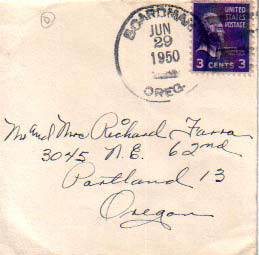 BOARDMAN
JUN
29
1950
OREG.
UNITED
STATES
POSTAGE
3 CENTS 3
Mr and Mrs Richard Farra
3045 N.E. 62nd
Portland 13
Oregon